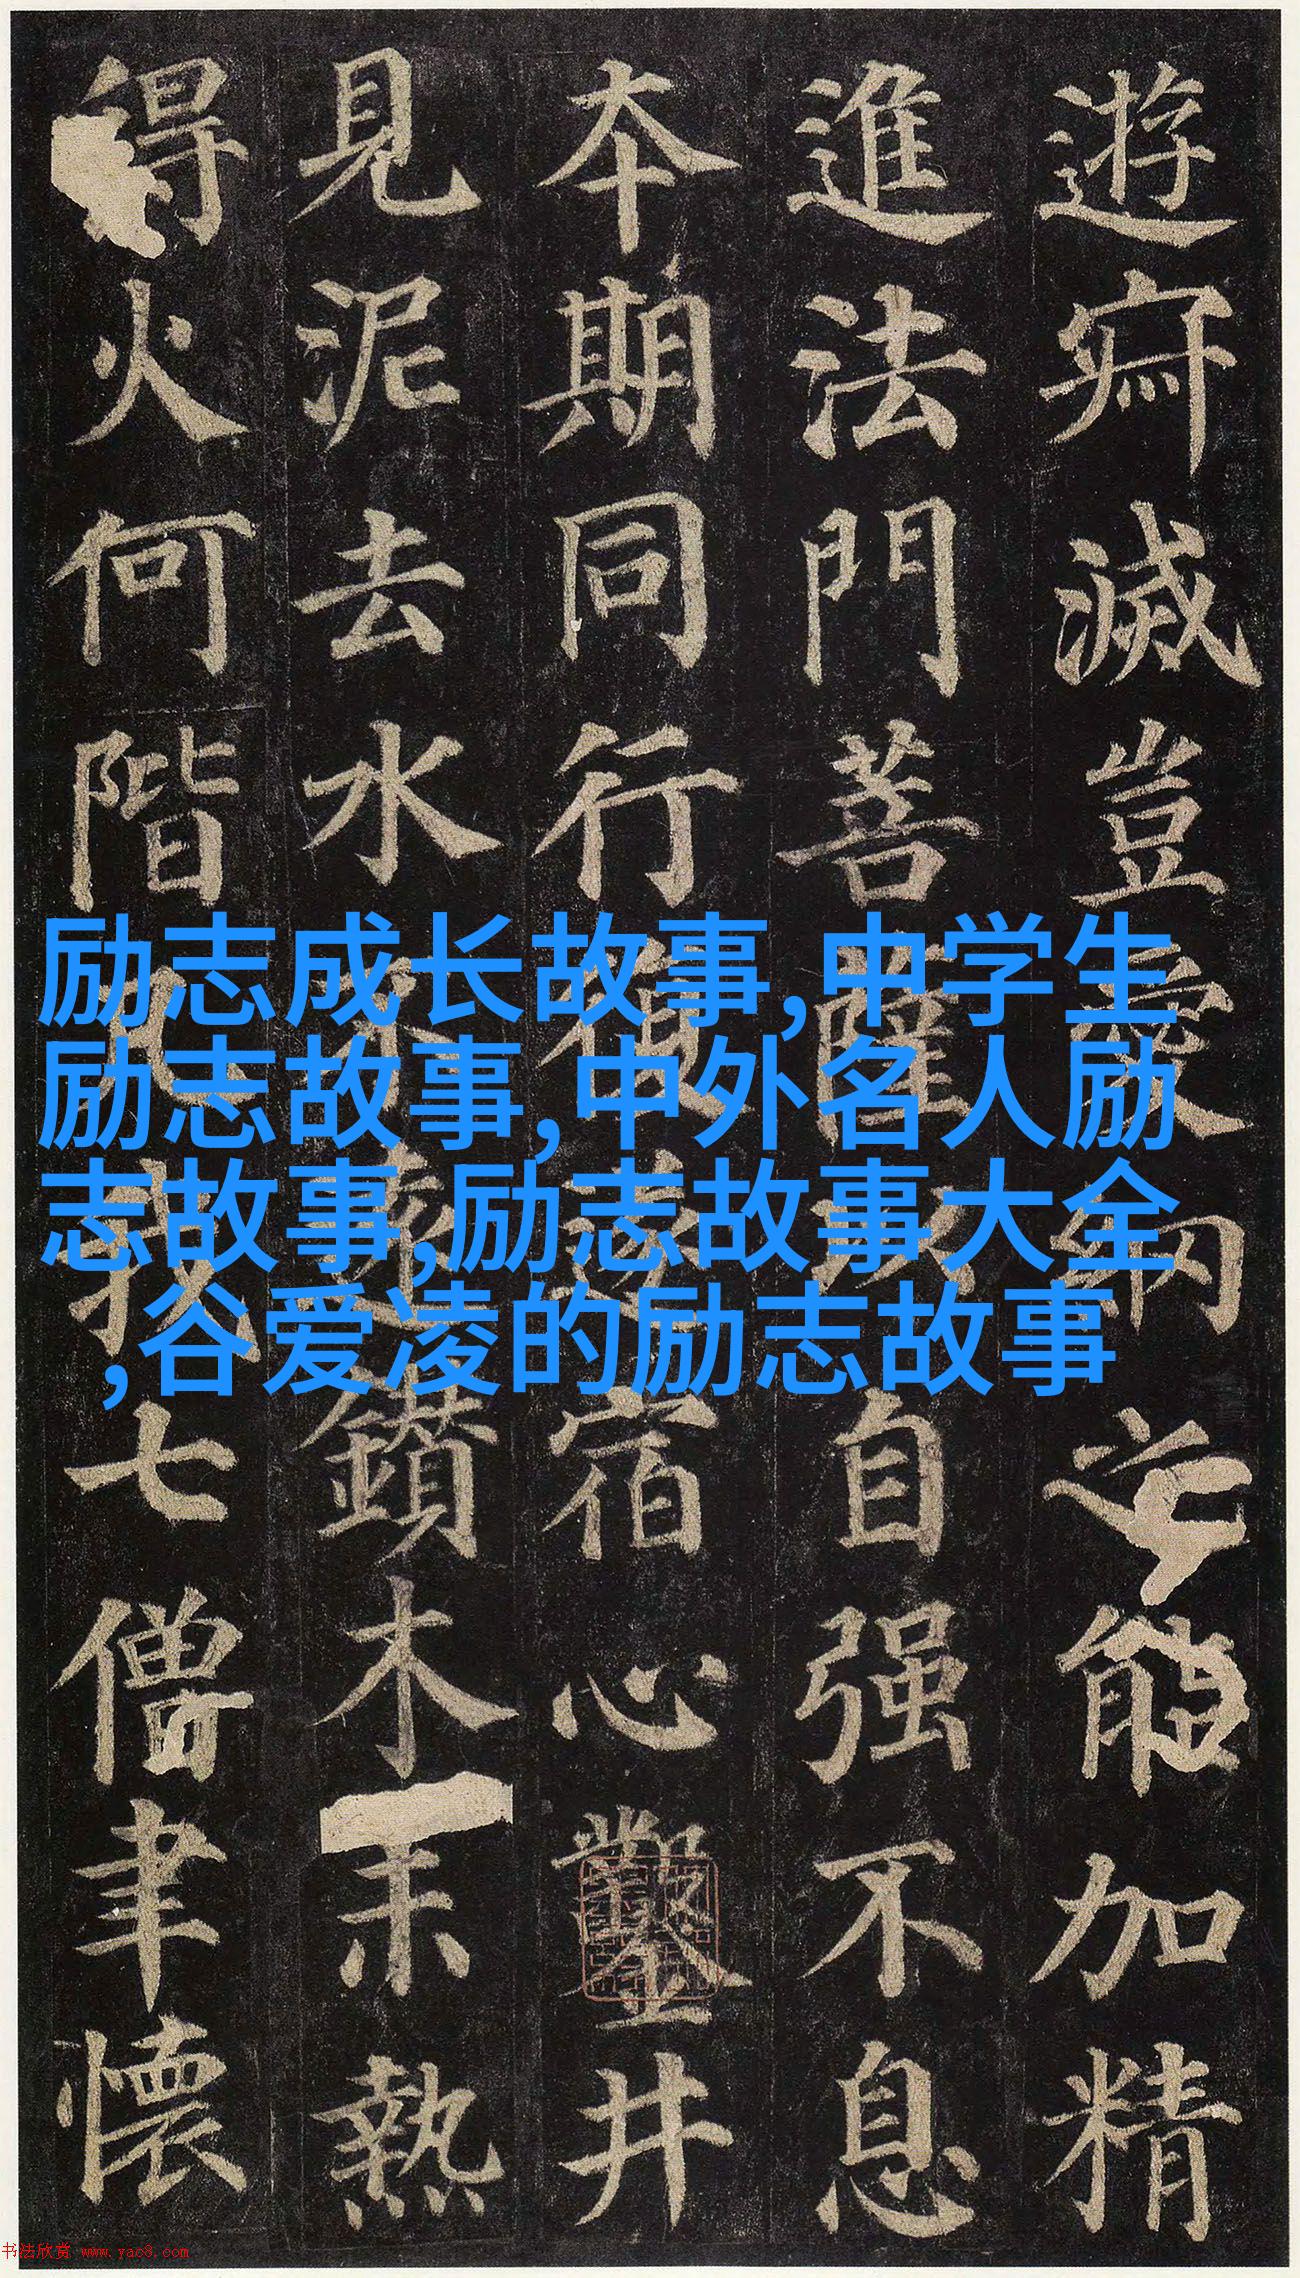 遊寂滅豈愛網之能加精
進法門菩薩以自强不息
本期同行復遂宿心鑿井
見泥去水不遠鑽木未熱
得火何階凡我七僧聿懷
励志成长故事,中学生
励志故事,中外名人励
志故事,励志故事大全
,谷爱凌的励志故事
书法欣赏 www.yac8.com